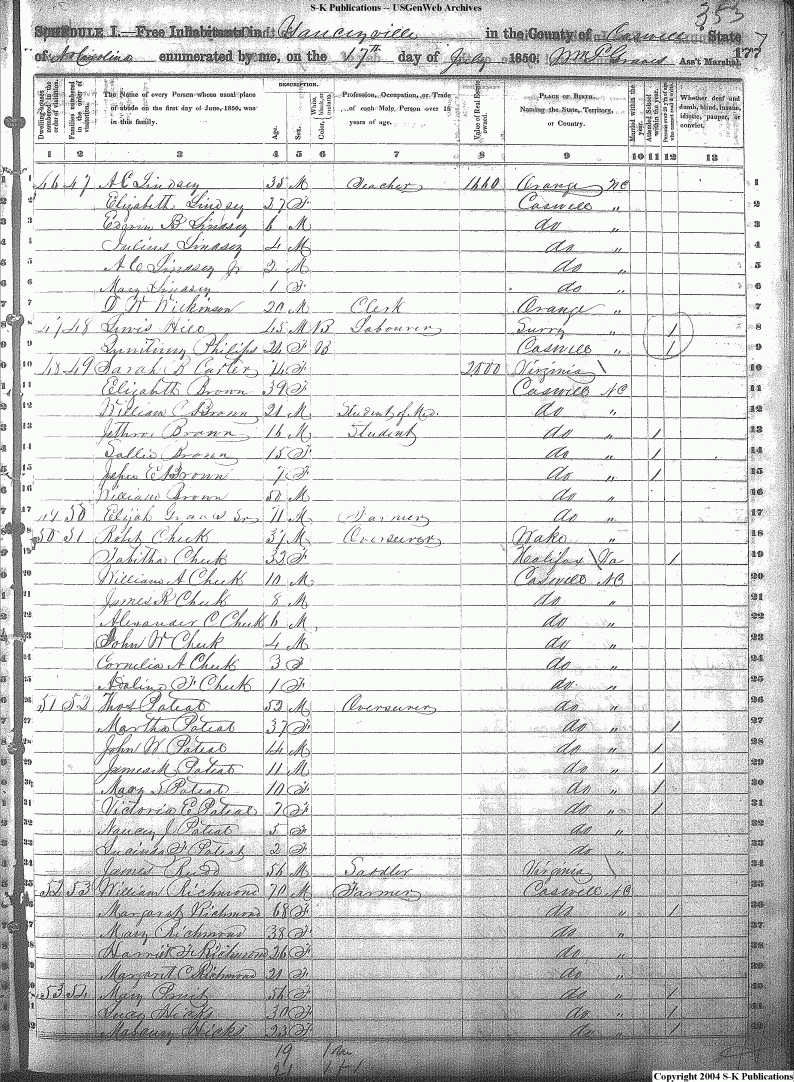 S-K Publications -- USGenWeb Archives
353
SCHEDULE I.—Free Inhabitants in Yanceyville in the County of Caswell State
of No Carolina enumerated by me, on the 17th day of July 1850. Wm P Graves Ass't Marshal. 177
Dwelling-houses numbered in the order of visitation.
Families numbered in the order of visitation.
The Name of every Person whose usual place of abode on the first day of June, 1850, was in this family.
DESCRIPTION.
Age.
Sex.
Color
Profession, Occupation, or Trade of each Male Person over 15 years of age.
Value of Real Estate owned.
PLACE OF BIRTH. Naming the State, Territory, or Country.
Married within the year.
Attended School within the year.
Whether deaf and dumb, blind, insane, idiotic, pauper, or convict.
1 2 3 4 5 6 7 8 9 10 11 12 13
1 46 47 A C Lindsey 35 M Teacher 1660 Orange NC 1
2 Elizabeth Lindsey 27 F Caswell " 2
3 B Lindsey 6 M do " 3
4 Julius Lindsey 4 M do " 4
5 A C Lindsey Jr 2 M do " 5
6 Mary Lindsey 1 F do " 6
7 Wilkinson 20 M Clerk Orange " 7
8 47 48 Lewis 45 M B Labourer Surry " 1 8
9 Philips 24 F B Caswell " 1 9
10 48 49 Sarah B Carter F 2500 Virginia 10
11 Elizabeth Brown 39 F Caswell NC 11
12 William Brown 21 M Student of Med. do " 12
13 Jethro Brown 16 M Student do " 1 13
14 Sallie Brown 15 F do " 1 14
15 E Brown 7 F do " 1 15
16 William Brown 50 M do " 16
17 49 50 Elijah Graves Sr 71 M Farmer do " 17
18 50 51 Robt Cheek 37 M Overseer Wake " 18
19 Tabitha Cheek 32 F Halifax Va 1 19
20 William A Cheek 10 M Caswell NC 20
21 James R Cheek 8 M do " 21
22 Alexander C Cheek 6 M do " 22
23 John W Cheek 4 M do " 23
24 Cornelia A Cheek 3 F do " 24
25 F Cheek 1 F do " 25
26 51 52 Thos Poteat 53 M Overseer do " 26
27 Martha Poteat 37 F do " 1 27
28 John W Poteat 14 M do " 1 28
29 James M Poteat 11 M do " 1 29
30 Mary S Poteat 10 F do " 1 30
31 Victoria E Poteat 7 F do " 1 31
32 Nancy J Poteat 5 F do " 32
33 Lucinda F Poteat 2 F do " 33
34 James Rudd 56 M Saddler Virginia 34
35 52 53 William Richmond 70 M Farmer Caswell NC 35
36 Margaret Richmond 68 F do " 1 36
37 Mary Richmond 38 F do " 37
38 Harriet F Richmond 26 F do " 38
39 Margaret C Richmond 21 F do " 39
40 53 54 Mary 56 F do " 1 40
41 Hicks 30 F do " 1 41
42 Hicks 23 F do " 1 42
19
Copyright 2004 S-K Publications